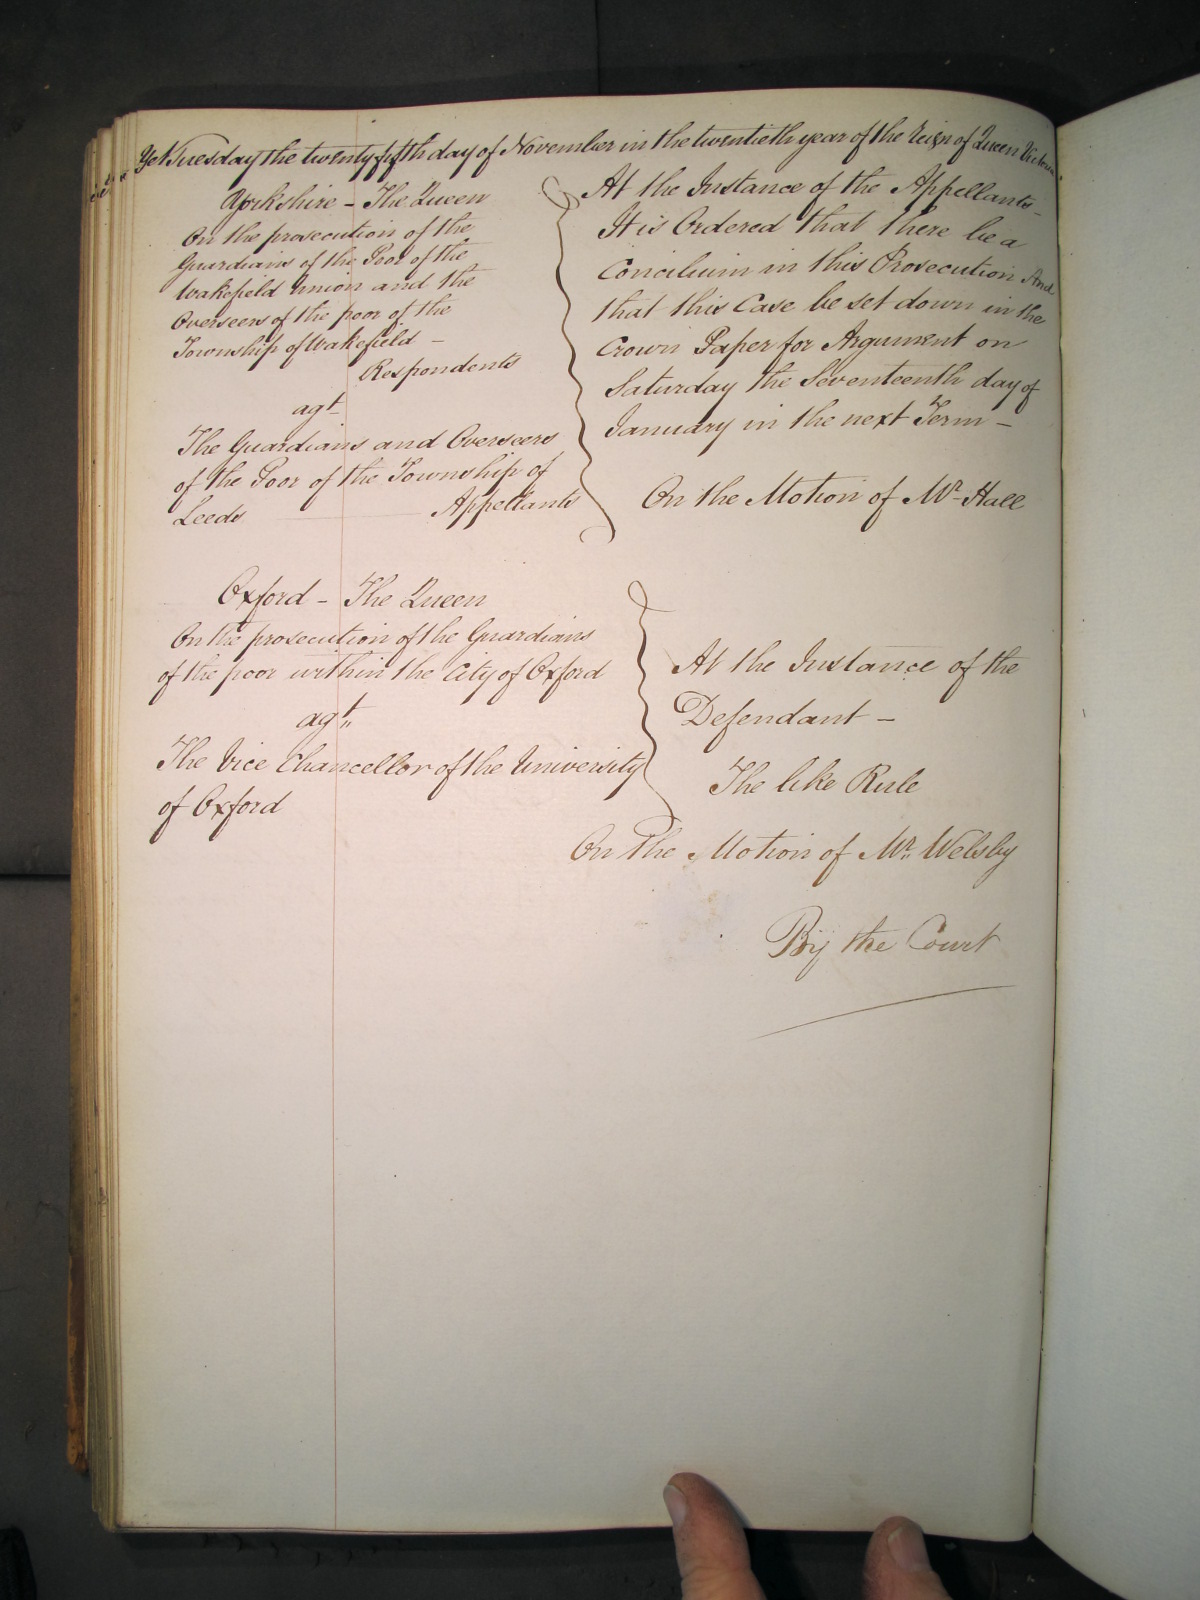 Yet Tuesday the twenty fifth day of November in the twentieth year of the Reign of Queen Victoria
Yorkshire – The Queen
On the prosecution of the
Guardians of the Poor of the
Wakefield Union and the
Overseers of the poor of the
Township of Wakefield –
Respondents
agt
The Guardians and Overseers
of the Poor of the Township of
Leeds Appellants
At the Instance of the Appellants –
It is Ordered that there be a
Concilium in this Prosecution And
that this Case be set down in the
Crown Paper for Argument on
Saturday the Seventeenth day of
January in the next Term –
On the Motion of Mr Hall
Oxford – The Queen
On the prosecution of the Guardians
of the poor within the City of Oxford
agt
The Vice Chancellor of the University
of Oxford
At the Instance of the
Defendant –
The like Rule
On the Motion of Mr. Welsby
By the Court